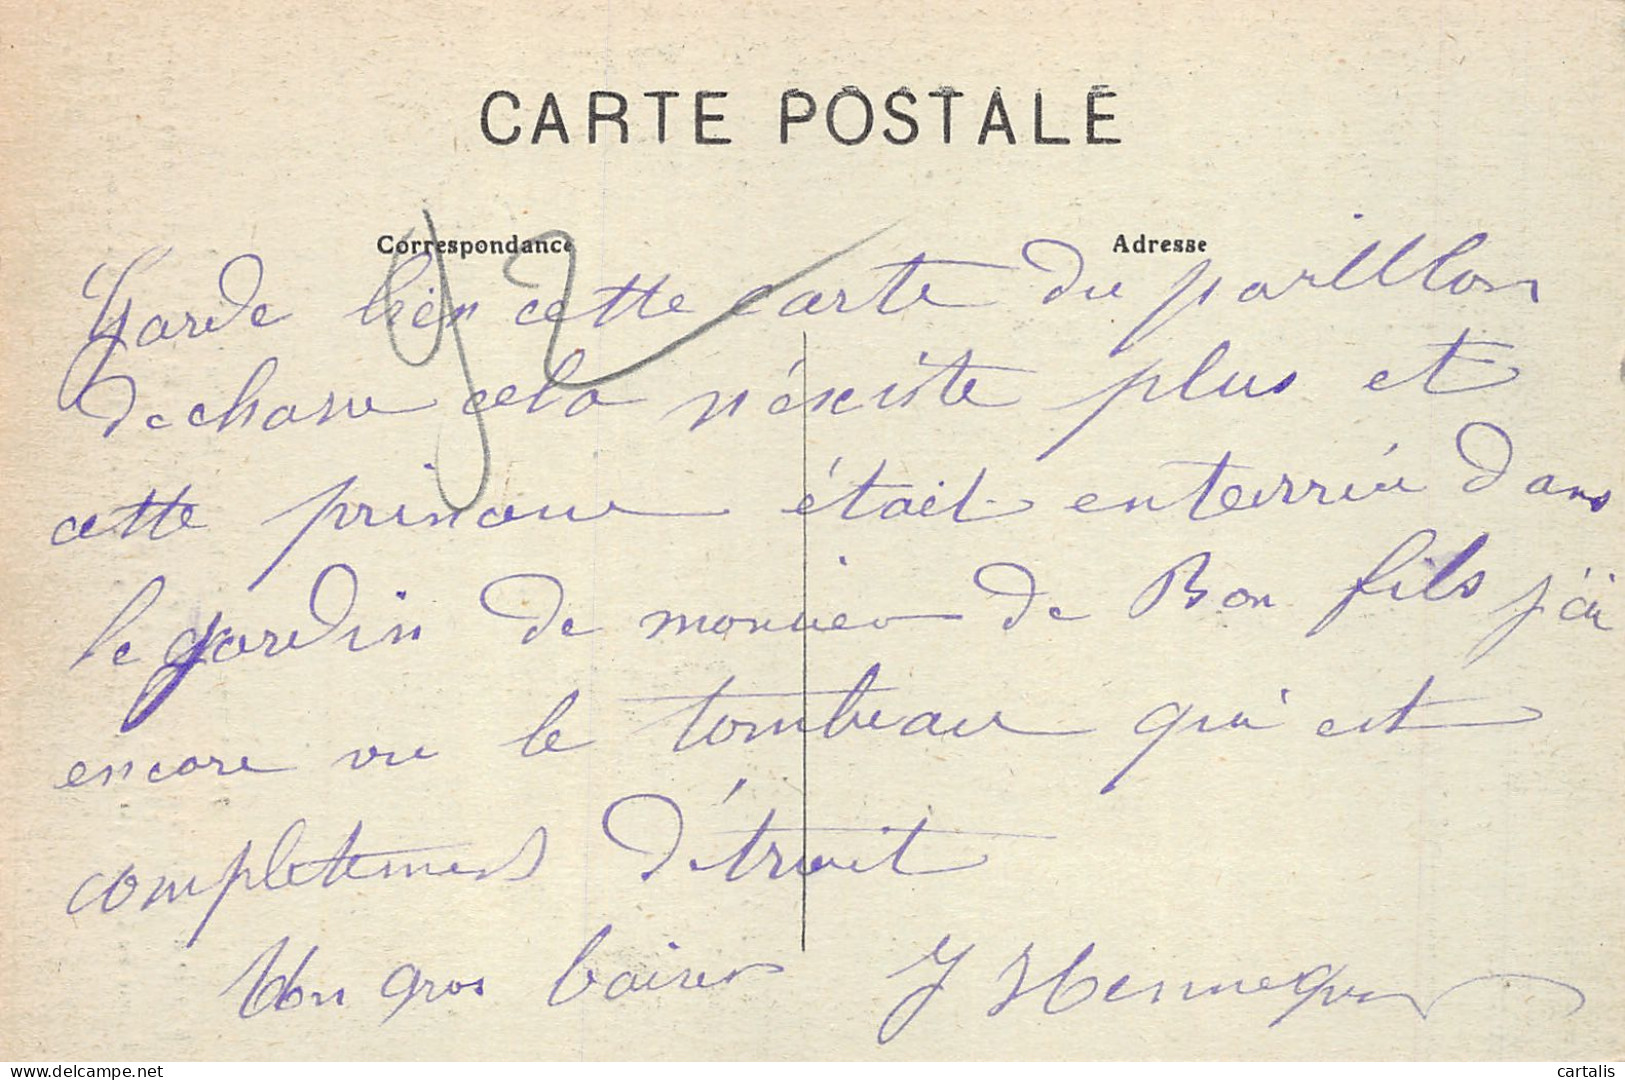 CARTE POSTALE
Correspondance
Adresse
92
Garde bien cette carte du parillon
de chasse cela n'éxciste plus et
cette princesse était enterrée dans
le jardin de monsieur de Bon fils j'ai
encore vu le tombeau qui est
completement détruit
Un gros baiser J Hennequin
delcampe.net
cartalis